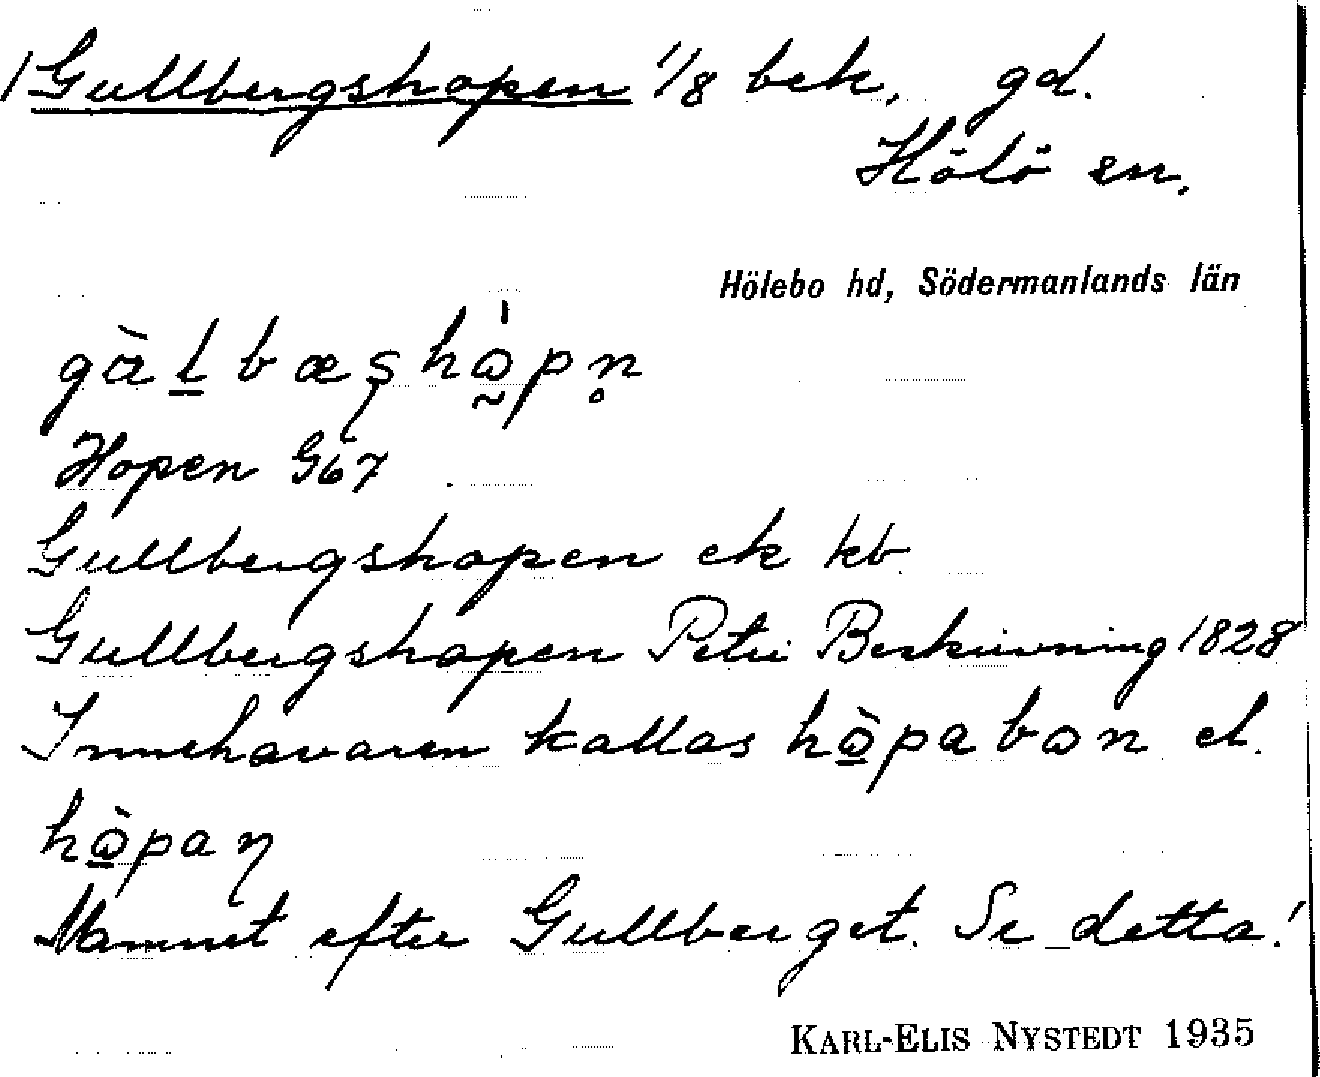 /Gullbergshopen 1/8 bek, gd.
Hölö sn.
Hölebo hd, Södermanlands län
gàḻbæʂhꞷ̀́pn̥
Hopen G67
Gullbergshopen ek kb
Gullbergshopen Petri Beskrivning 1828
Innehavaren kallas hꞷ̠̀pabꞷn el.
hꞷ̠̀paɳ
Namnet efter Gullberget. Se detta!
KARL-ELIS NYSTEDT 1935